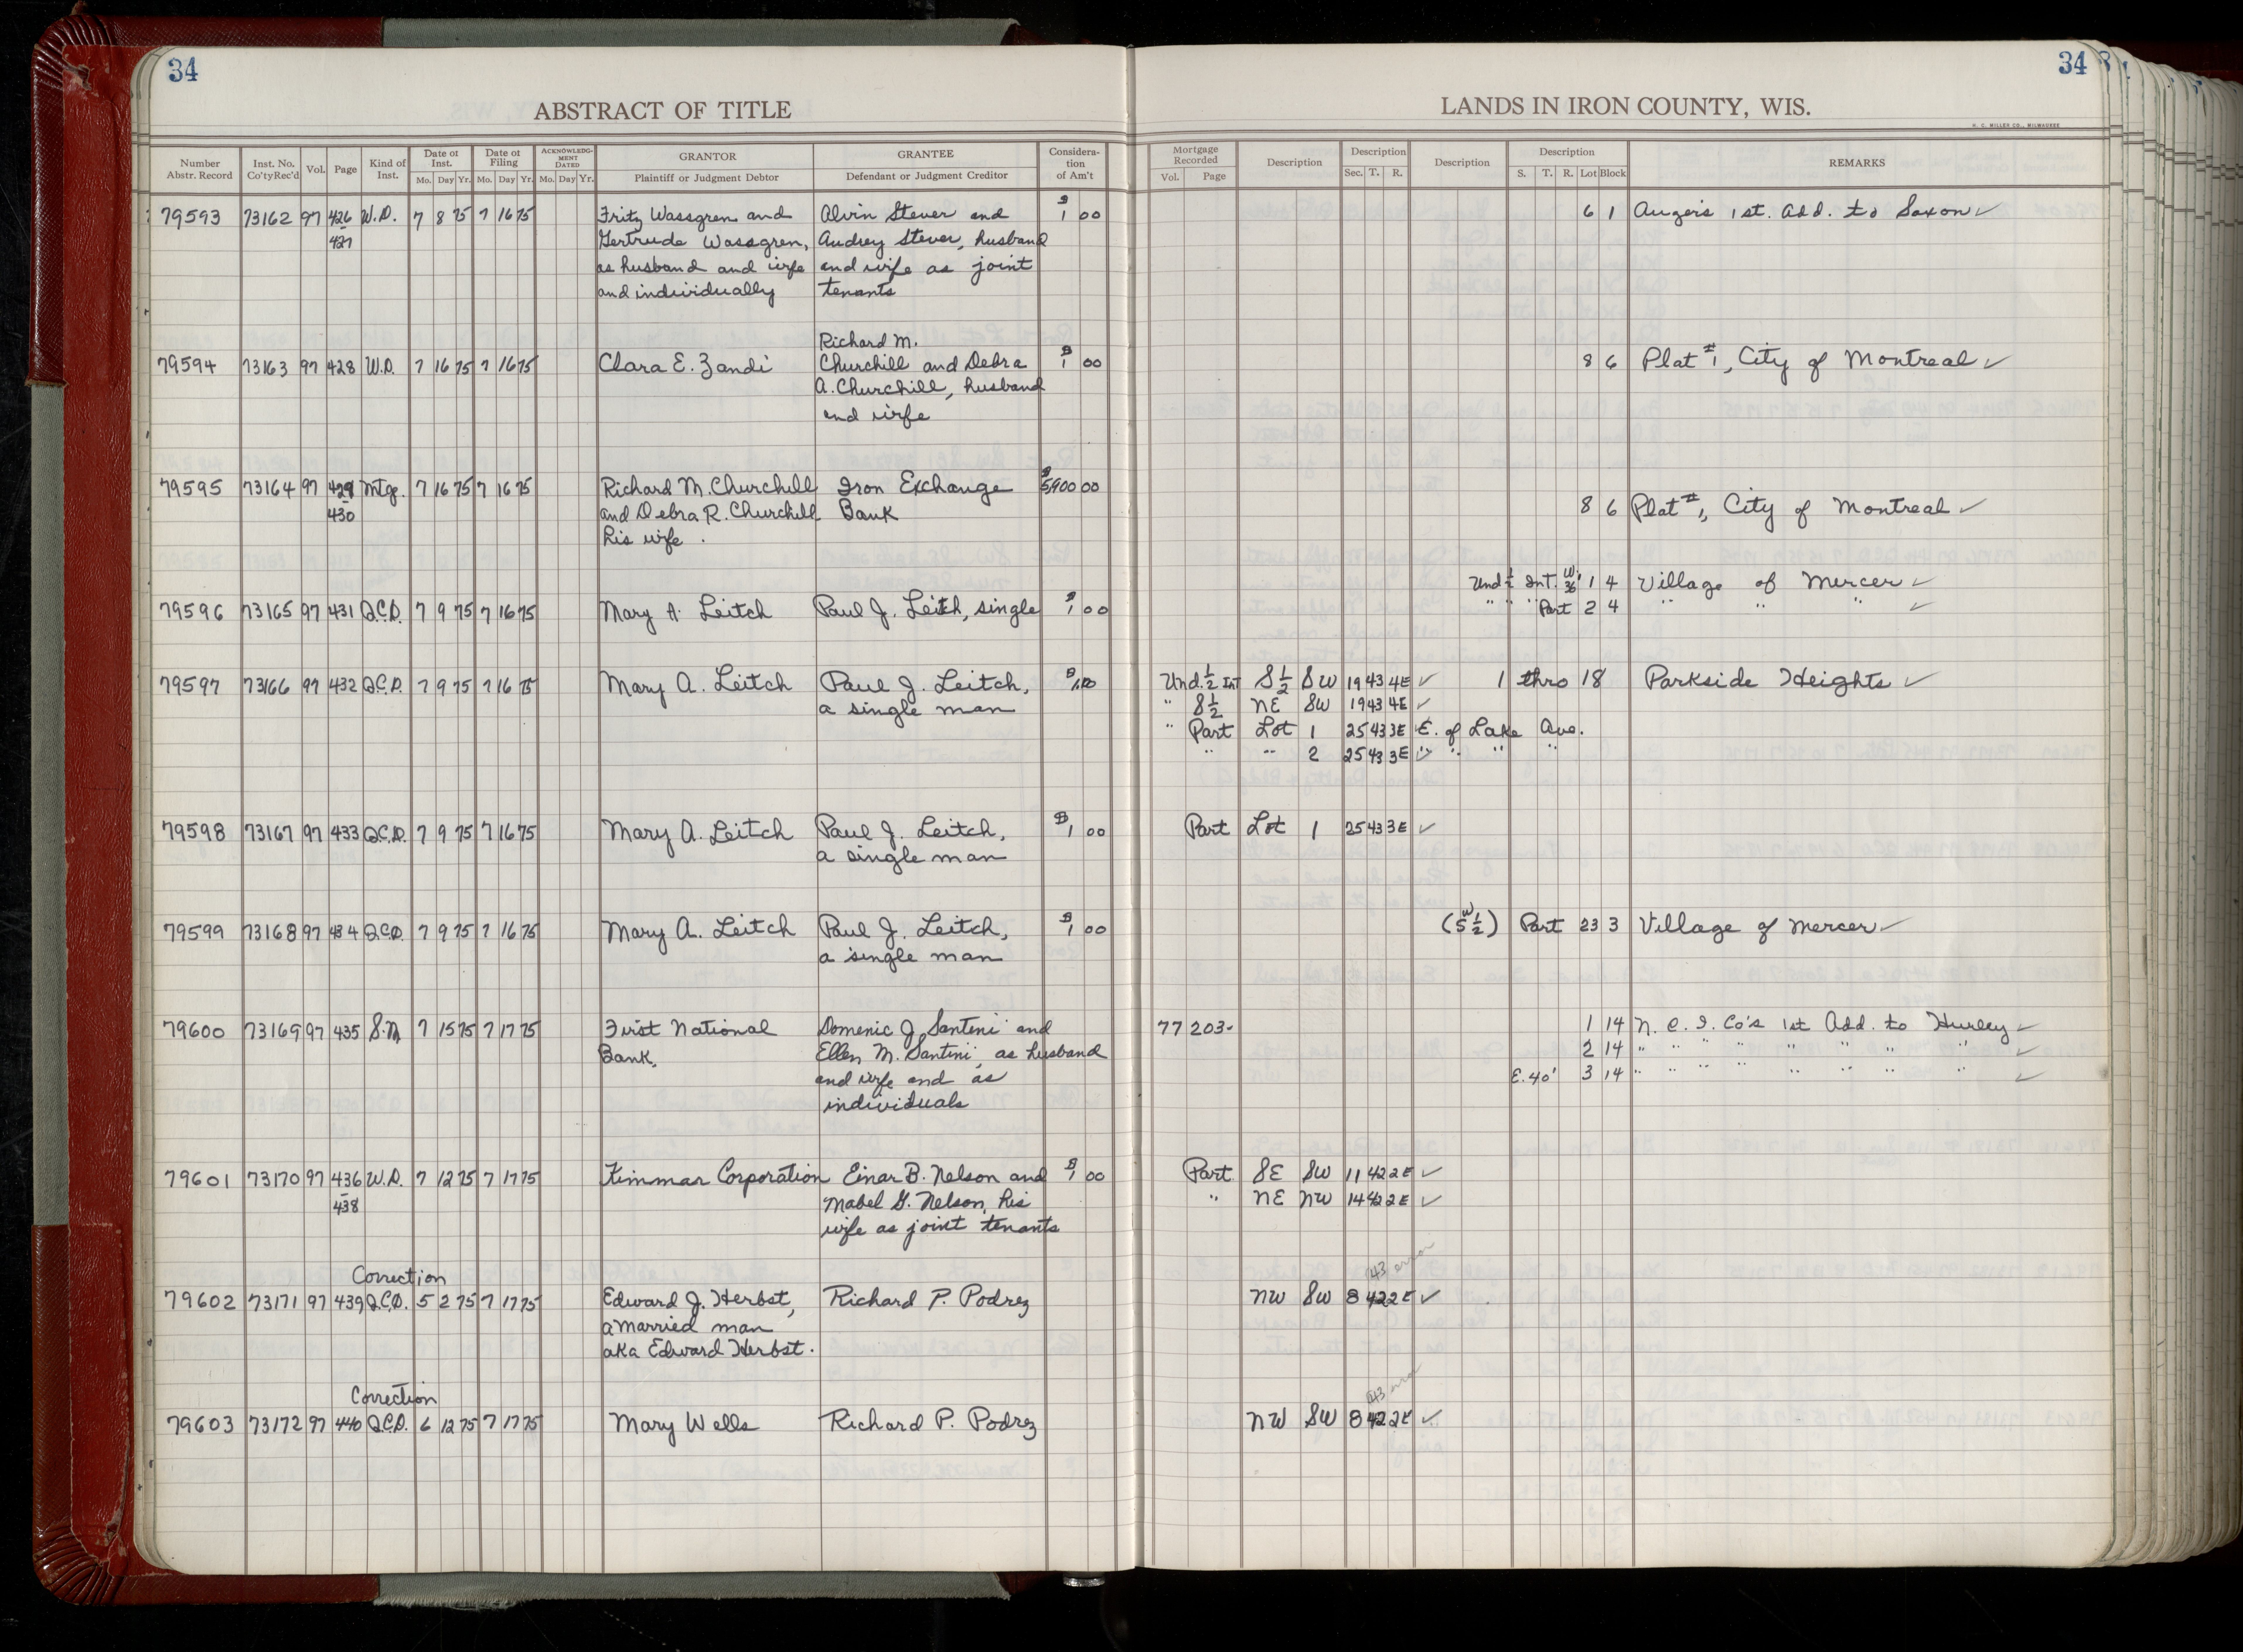 34
34
ABSTRACT OF TITLE
LANDS IN IRON COUNTY, WIS.
H. C. MILLER CO., MILWAUKEE
Number Abstr. Record | Inst. No. Co'ty Rec'd | Vol. | Page | Kind of Inst. | Date of Inst. Mo. Day Yr. | Date of Filing Mo. Day Yr. | ACKNOWLEDGMENT DATED Mo. Day Yr. | GRANTOR Plaintiff or Judgment Debtor | GRANTEE Defendant or Judgment Creditor | Consideration of Am't | Mortgage Recorded Vol. Page | Description | Description Sec. T. R. | Description | Description S. T. R. Lot Block | REMARKS
79593 73162 97 426 W.D. 7 8 75 7 16 75 Fritz Wassgren and Alvin Stever and $1 00 6 1 Auger's 1st. Add. to Saxon ✓
427 Gertrude Wassgren, Audrey Stever, husband
as husband and wife and wife as joint
and individually tenants
Richard M.
79594 73163 97 428 W.D. 7 16 75 7 16 75 Clara E. Zandi Churchill and Debra $1 00 8 6 Plat #1, City of Montreal ✓
A. Churchill, husband
and wife
79595 73164 97 429 Mtge. 7 16 75 7 16 75 Richard M. Churchill Iron Exchange $5,900 00
430 and Debra R. Churchill Bank 8 6 Plat #1, City of Montreal ✓
his wife.
Und ½ Int. W. 36' 1 4 Village of Mercer ✓
79596 73165 97 431 Q.C.D. 7 9 75 7 16 75 Mary A. Leitch Paul J. Leith, single $1 00 " " " Part 2 4 " " " ✓
79597 73166 97 432 Q.C.D. 7 9 75 7 16 75 Mary A. Leitch Paul J. Leitch, $1.00 Und. ½ Int S ½ SW 19 43 4E ✓ 1 thro 18 Parkside Heights ✓
a single man " S½ NE SW 19 43 4E ✓
" Part Lot 1 25 43 3E E. of Lake Ave.
" " 2 25 43 3E ✓ " " "
79598 73167 97 433 Q.C.D. 7 9 75 7 16 75 Mary A. Leitch Paul J. Leitch, $1 00 Part Lot 1 25 43 3E ✓
a single man
79599 73168 97 434 Q.C.D. 7 9 75 7 16 75 Mary A. Leitch Paul J. Leitch, $1 00 (SW ½) Part 23 3 Village of Mercer ✓
a single man
79600 73169 97 435 S.M 7 15 75 7 17 75 First National Domenic J. Santini and 77 203- 1 14 N. C. I. Co's 1st Add. to Hurley ✓
Bank, Ellen M. Santini, as husband 2 14 " " " " " " " " ✓
and wife and as E. 40' 3 14 " " " " " " " " ✓
individuals
79601 73170 97 436 W.D. 7 12 75 7 17 75 Kimmar Corporation Einar B. Nelson and $1 00 Part SE SW 11 42 2E ✓
438 Mabel G. Nelson, his " NE NW 14 42 2E ✓
wife as joint tenants
Correction 43 error
79602 73171 97 439 Q.C.D. 5 2 75 7 17 75 Edward J. Herbst, Richard P. Podrez NW SW 8 42 2E ✓
a married man
aka Edward Herbst.
Correction 43 error
79603 73172 97 440 Q.C.D. 6 12 75 7 17 75 Mary Wells Richard P. Podrez NW SW 8 42 2E ✓